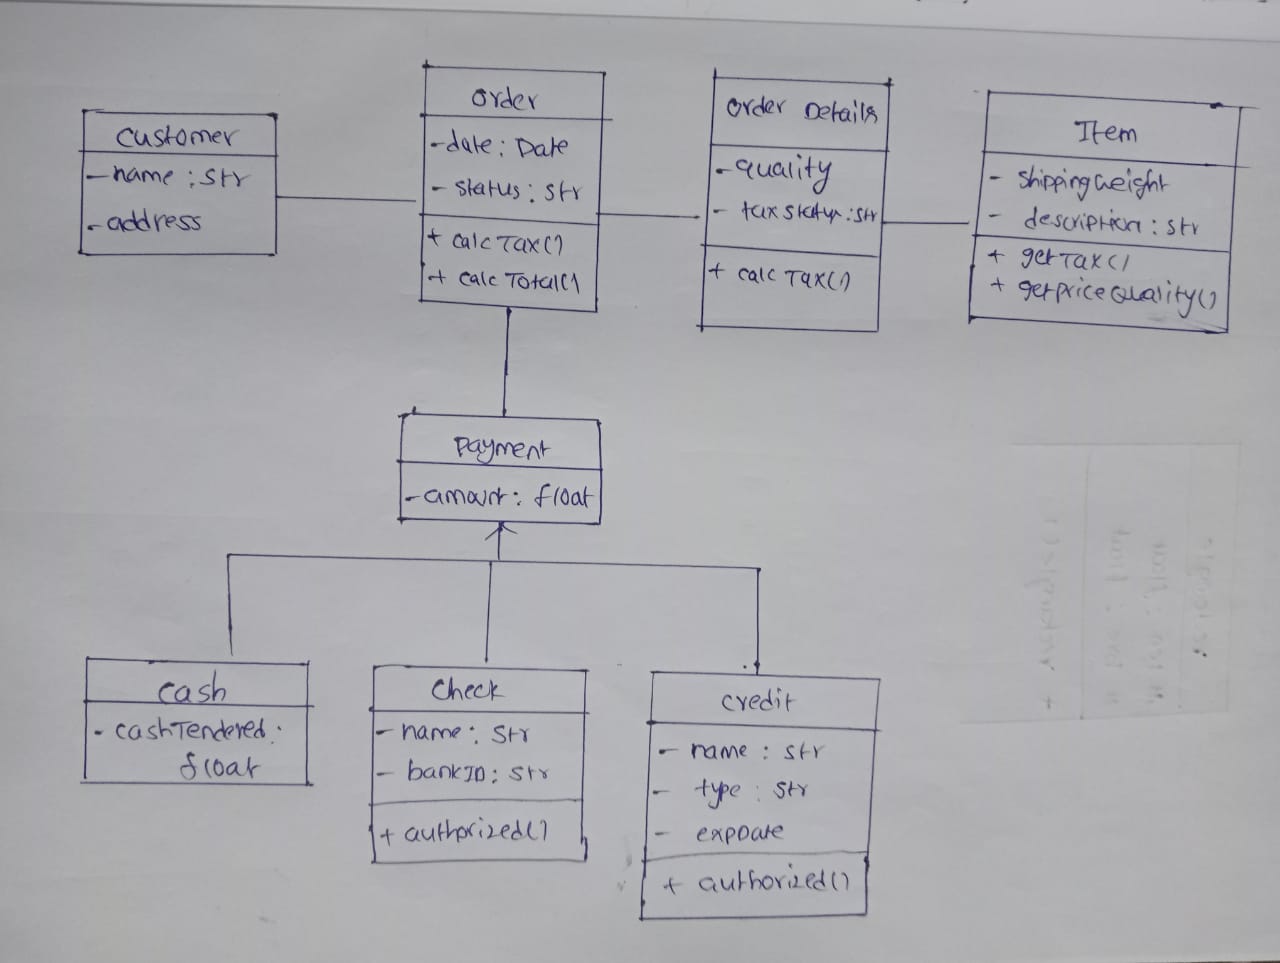 customer
- name : str
- address
order
- date : Date
- status : str
+ calc Tax()
+ calc Total()
order Details
- quality
- tax status : str
+ calc Tax()
Item
- shippingweight
- description : str
+ getTax()
+ getpriceQuality()
payment
- amount : float
cash
- cashTendered :
float
check
- name : str
- bankID : str
+ authorized()
credit
- name : str
- type : str
- expDate
+ authorized()